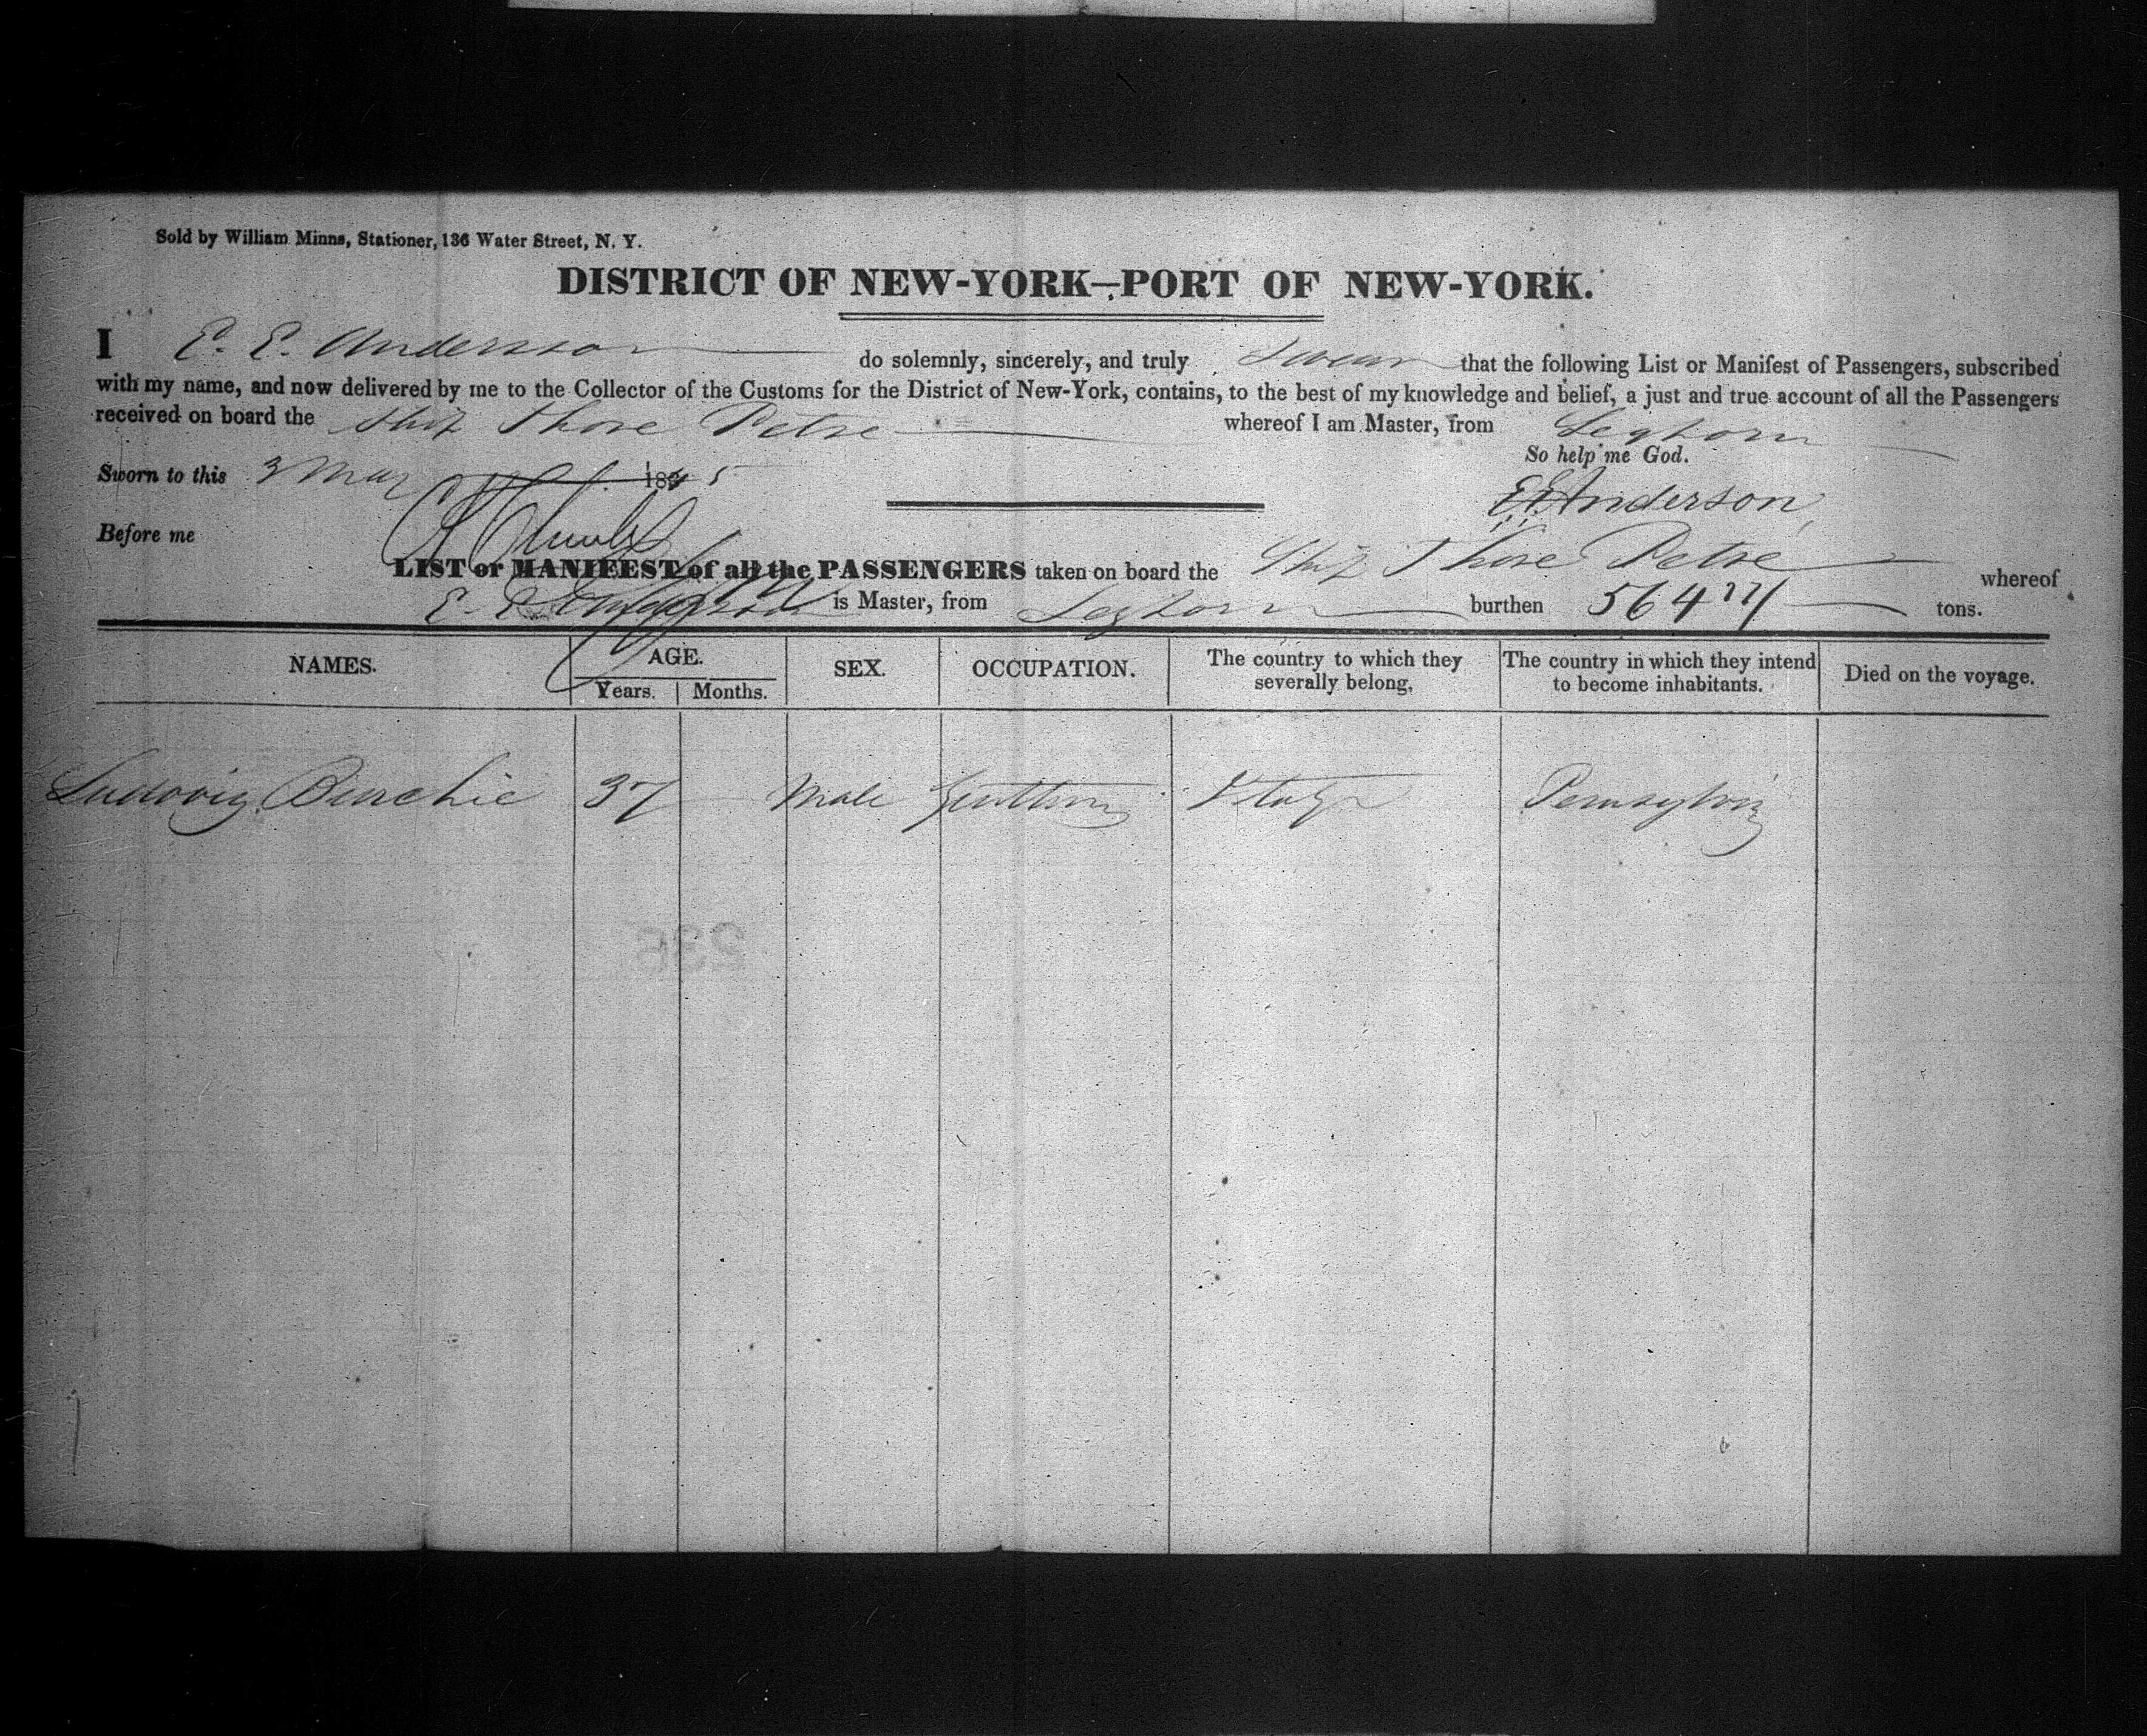 Sold by William Minns, Stationer, 136 Water Street, N. Y.
DISTRICT OF NEW-YORK—PORT OF NEW-YORK.
I E. E. Anderson do solemnly, sincerely, and truly Swear that the following List or Manifest of Passengers, subscribed
with my name, and now delivered by me to the Collector of the Customs for the District of New-York, contains, to the best of my knowledge and belief, a just and true account of all the Passengers
received on board the Ship Thore Petre whereof I am Master, from Leghorn
So help me God.
Sworn to this 3 May 1845
E E Anderson
Before me
LIST or MANIFEST of all the PASSENGERS taken on board the Ship Thore Petre whereof
E. E. Anderson is Master, from Leghorn burthen 564 tons.
NAMES. AGE. Years. Months. SEX. OCCUPATION. The country to which they severally belong, The country in which they intend to become inhabitants. Died on the voyage.
Ludovig 37 Male Italy
236